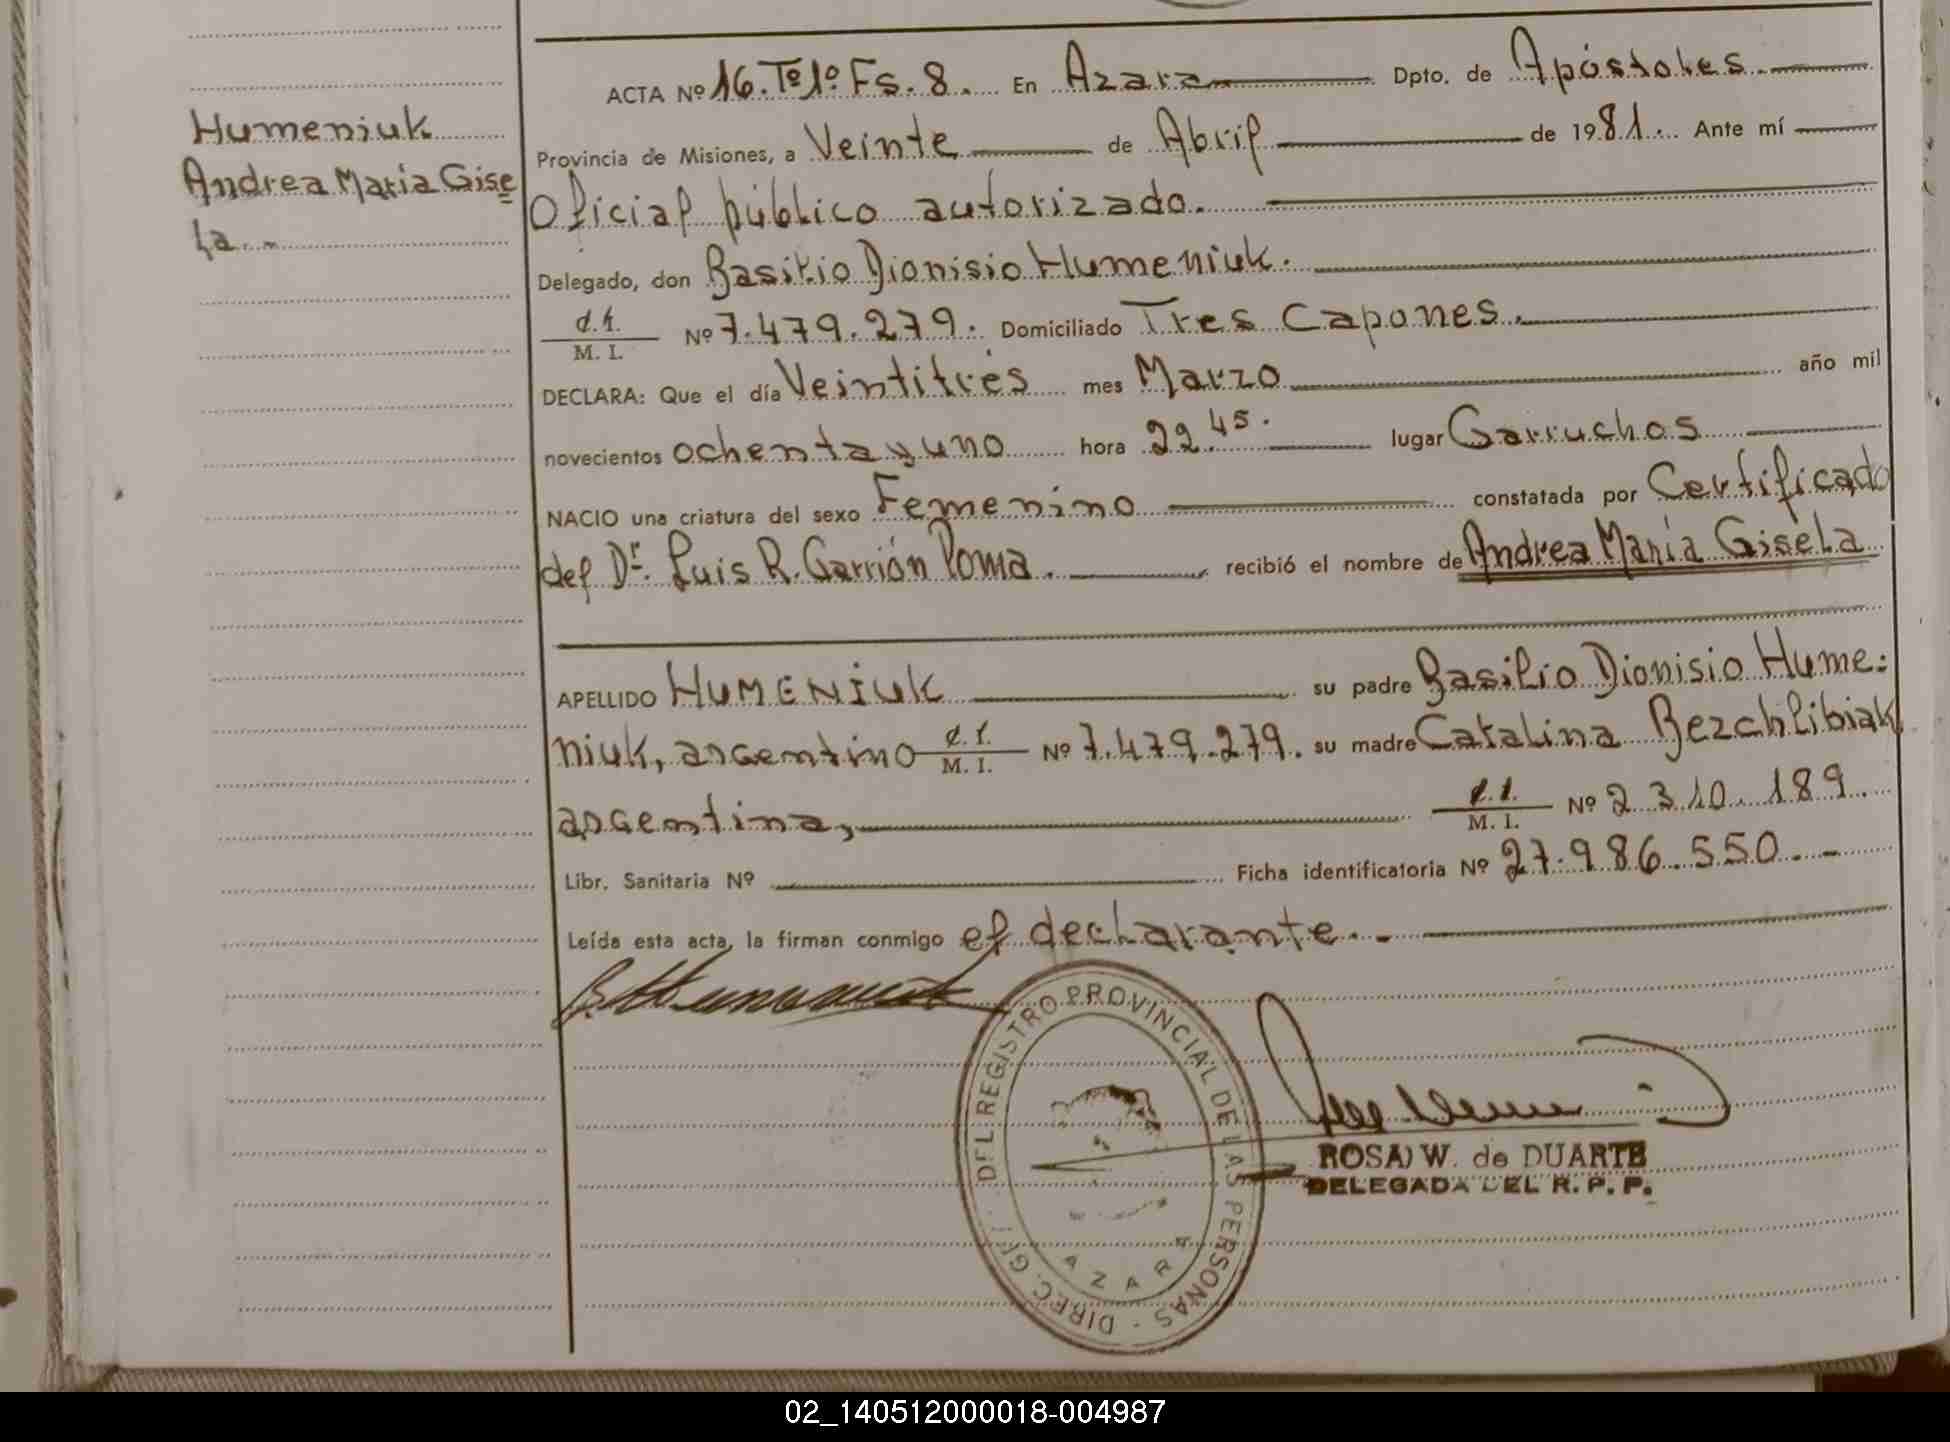 Humeniuk
Andrea Maria Gise
la.-
ACTA Nº 16. Tº 1º Fs. 8. En Azara Dpto. de Apóstoles.
Provincia de Misiones, a Veinte de Abril de 1981. Ante mí
Oficial público autorizado.
Delegado, don Basilio Dionisio Humeniuk.
M. I. Nº 7.479.279. Domiciliado Tres Capones.
DECLARA: Que el día Veintitrés mes Marzo año mil
novecientos ochenta y uno hora 22.45. lugar Garruchos
NACIO una criatura del sexo Femenino constatada por Certificado
del Dr. Luis R. Garrión Poma. recibió el nombre de Andrea María Gisela
APELLIDO HUMENIUK su padre Basilio Dionisio Hume=
niuk, argentino M. I. Nº 7.479.279. su madre Catalina Bezchlibiak
argentina, M. I. Nº 2 310.189.
Libr. Sanitaria Nº Ficha identificatoria Nº 27.986.550.-
Leída esta acta, la firman conmigo el declarante.-
DIREC. GRL. DEL REGISTRO PROVINCIAL DE LAS PERSONAS -
AZARA
ROSA W. de DUARTE
DELEGADA DEL R. P. P.
02_140512000018-004987